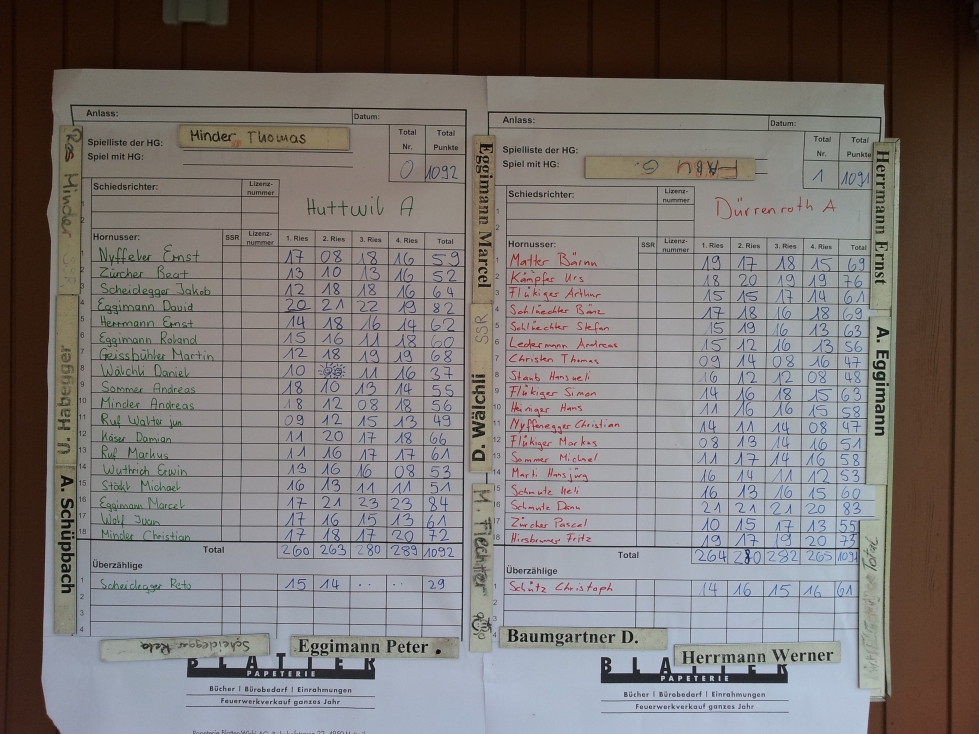 Anlass: Datum:
Spielliste der HG: Minder Thomas Total Total
Spiel mit HG: Nr. Punkte
0 1092
Schiedsrichter: Lizenz-nummer
1
2
Huttwil A
Hornusser: SSR Lizenz-nummer 1. Ries 2. Ries 3. Ries 4. Ries Total
1 Nyffeler Ernst 17 08 18 16 59
2 Zürcher Beat 13 10 13 16 52
3 Scheidegger Jakob 12 18 18 16 64
4 Eggimann David 20 21 22 19 82
5 Herrmann Ernst 14 18 16 14 62
6 Eggimann Roland 15 16 11 18 60
7 Geissbühler Martin 12 18 19 19 68
8 Wälchli Daniel 10 11 16 37
9 Sommer Andreas 18 10 13 14 55
10 Minder Andreas 18 12 08 18 56
11 Ruf Walter jun. 09 12 15 13 49
12 Käser Damian 11 20 17 18 66
13 Ruf Markus 11 16 17 17 61
14 Wüthrich Erwin 13 16 16 08 53
15 Stöckl Michael 16 13 11 11 51
16 Eggimann Marcel 17 21 23 23 84
17 Wolf Juan 17 16 15 13 61
18 Minder Christian 17 18 17 20 72
Total 260 263 280 289 1092
Überzählige
1 Scheidegger Reto 15 14 .. .. 29
2
3
4
Scheidegger Reto
Eggimann Peter.
BLATTER
PAPETERIE
Bücher | Bürobedarf | Einrahmungen
Feuerwerkverkauf ganzes Jahr
Res Minder SSR
U. Habegger
A. Schüpbach
Eggimann Marcel
SSR
D. Wälchli
M. Flechter
Anlass: Datum:
Spielliste der HG: Total Total
Spiel mit HG: FABU G. Nr. Punkte
1 1091
Schiedsrichter: Lizenz-nummer
1
2
Dürrenroth A
Hornusser: SSR Lizenz-nummer 1. Ries 2. Ries 3. Ries 4. Ries Total
1 Matter Bärnu 19 17 18 15 69
2 Kämpfer Urs 18 20 19 19 76
3 Flükiger Arthur 15 15 17 14 61
4 Schlüechter Bänz 17 18 16 18 69
5 Schlüechter Stefan 15 19 16 13 63
6 Ledermann Andreas 15 12 16 13 56
7 Christen Thomas 09 14 08 16 47
8 Staub Hansueli 16 12 12 08 48
9 Flükiger Simon 14 16 18 15 63
10 Heiniger Hans 11 16 16 15 58
11 Nyffenegger Christian 14 11 14 08 47
12 Flükiger Markus 08 13 14 16 51
13 Sommer Michael 11 17 14 16 58
14 Marti Hansjürg 16 14 11 12 53
15 Schmutz Ueli 16 13 16 15 60
16 Schmutz Dänu 21 21 21 20 83
17 Zürcher Pascal 10 15 17 13 55
18 Hirsbrunner Fritz 19 17 19 20 75
Total 264 280 282 265 1091
Überzählige
1 Schütz Christoph 14 16 15 16 61
2
3
4
Baumgartner D.
Herrmann Werner
BLATTER
PAPETERIE
Bücher | Bürobedarf | Einrahmungen
Feuerwerkverkauf ganzes Jahr
Herrmann Ernst
A. Eggimann
Total